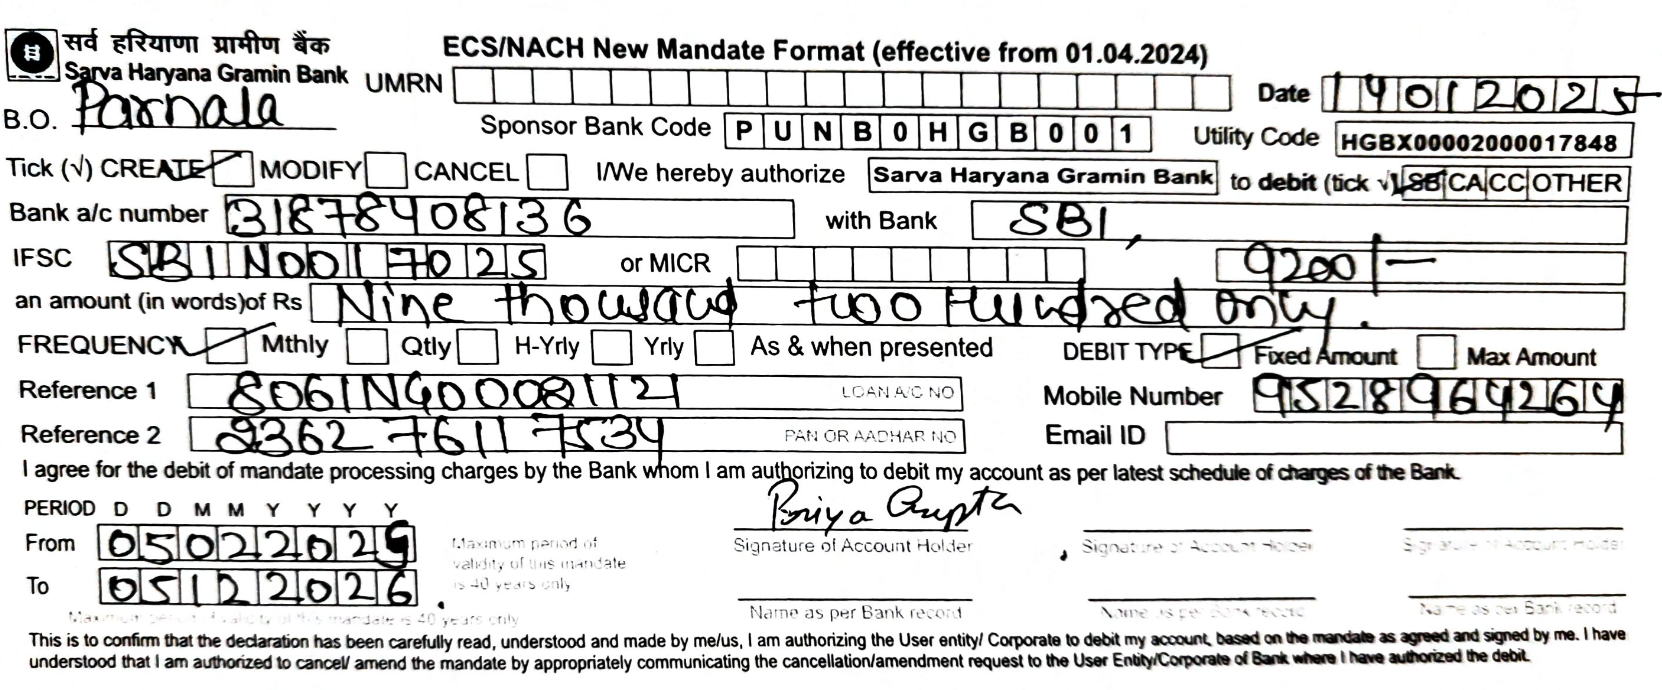 सर्व हरियाणा ग्रामीण बैंक
Sarva Haryana Gramin Bank
ECS/NACH New Mandate Format (effective from 01.04.2024)
UMRN
Date 14012025
B.O. Parnala
Sponsor Bank Code PUNB0HGB001 Utility Code HGBX00002000017848
Tick (√) CREATE MODIFY CANCEL I/We hereby authorize Sarva Haryana Gramin Bank to debit (tick √) SB CA CC OTHER
Bank a/c number 31878408136 with Bank SBI,
IFSC SBIN0017025 or MICR 9200/-
an amount (in words)of Rs Nine thousand two Hundred only.
FREQUENCY Mthly Qtly H-Yrly Yrly As & when presented DEBIT TYPE Fixed Amount Max Amount
Reference 1 8061NG00081121 LOAN A/C NO Mobile Number 9528964264
Reference 2 236276117534 PAN OR AADHAR NO Email ID
I agree for the debit of mandate processing charges by the Bank whom I am authorizing to debit my account as per latest schedule of charges of the Bank.
PERIOD D D M M Y Y Y Y
Priya Gupta
From 05022025 Maximum period of validity of this mandate is 40 years only Signature of Account Holder Signature of Account Holder Signature of Account Holder
To 05122026
Maximum period of validity of this mandate is 40 years only Name as per Bank record Name as per Bank record Name as per Bank record
This is to confirm that the declaration has been carefully read, understood and made by me/us, I am authorizing the User entity/ Corporate to debit my account, based on the mandate as agreed and signed by me. I have
understood that I am authorized to cancel/ amend the mandate by appropriately communicating the cancellation/amendment request to the User Entity/Corporate of Bank where I have authorized the debit.